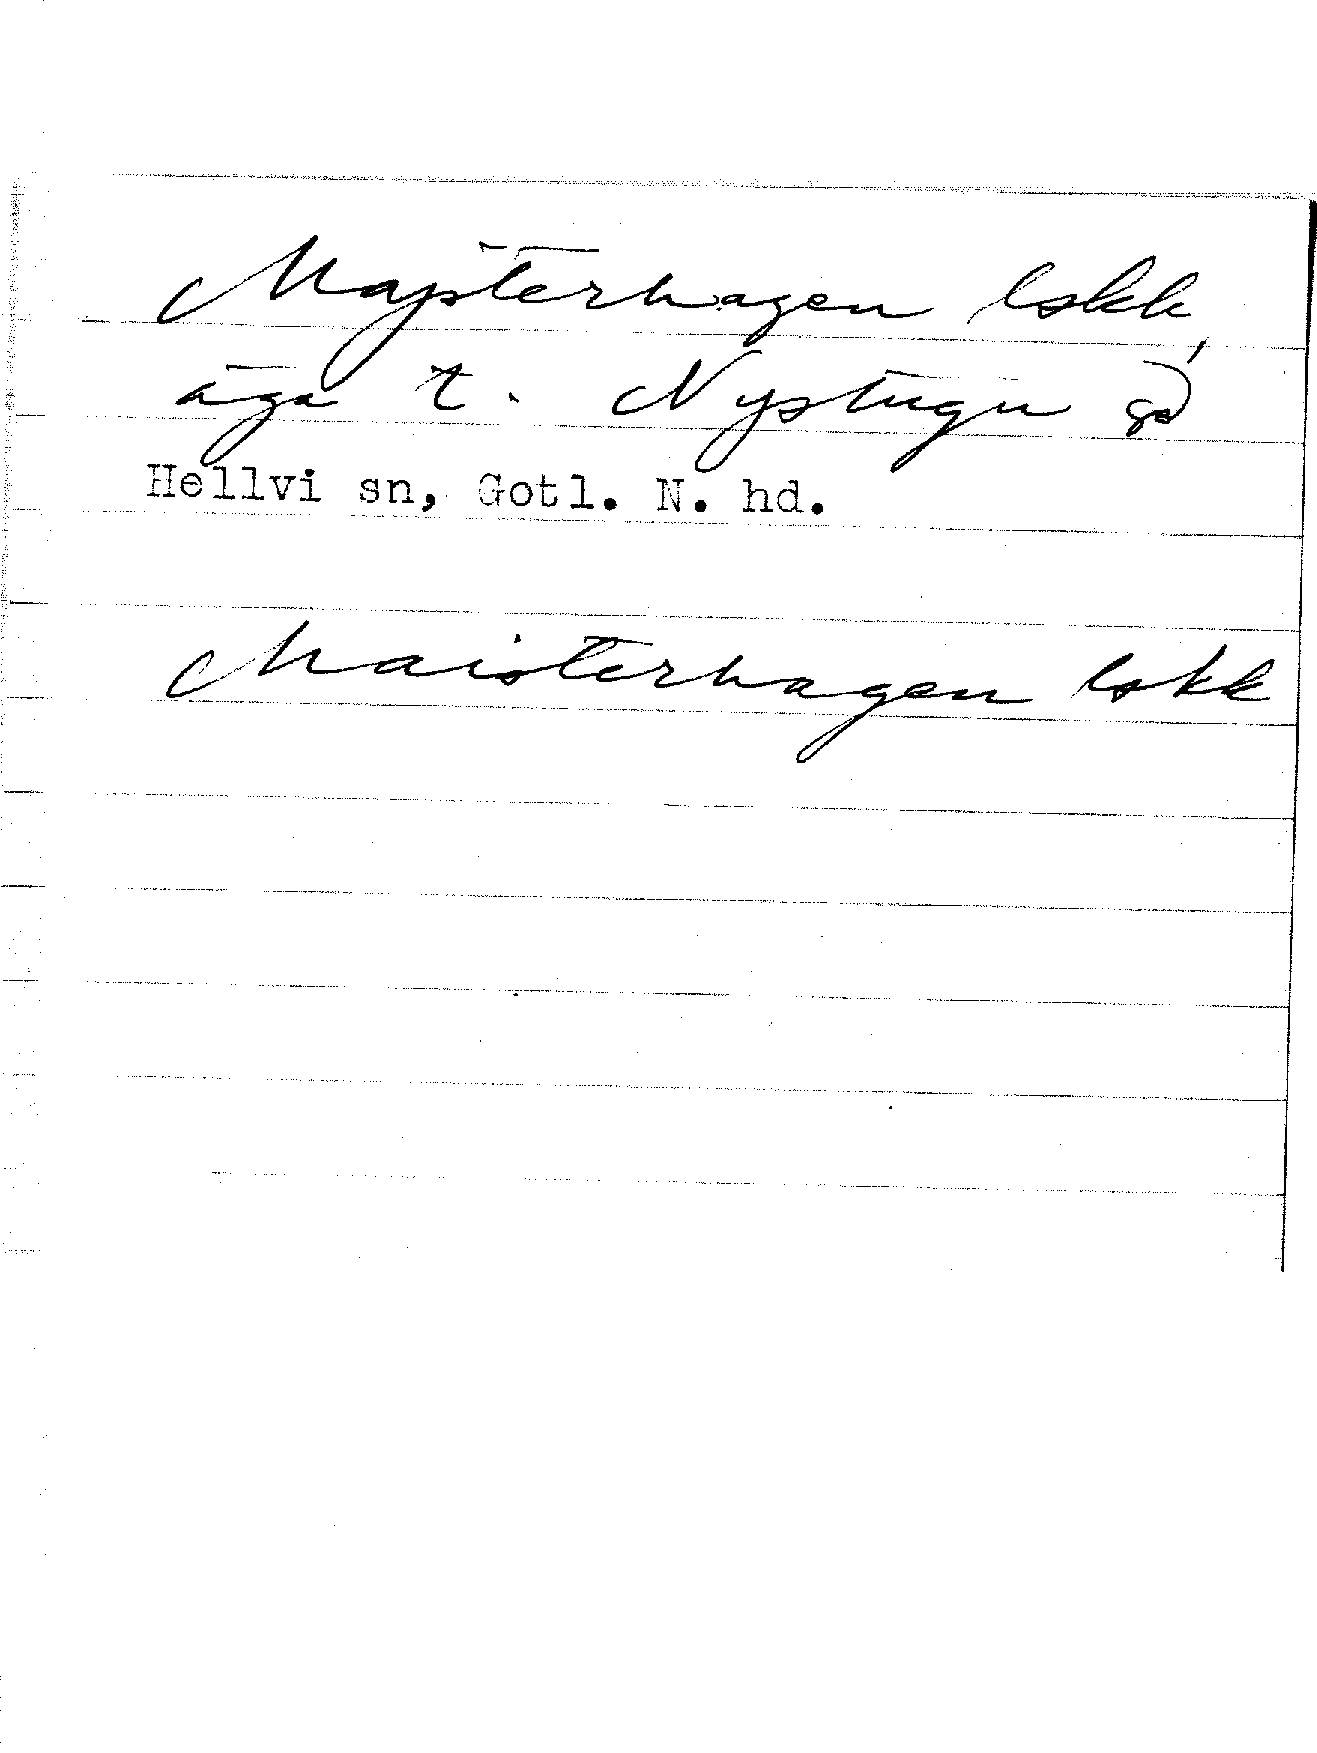 Majsterhagen lskk,
äga t. Nystugu gd
Hellvi sn, Gotl. N. hd.
Maisterhagen lskk